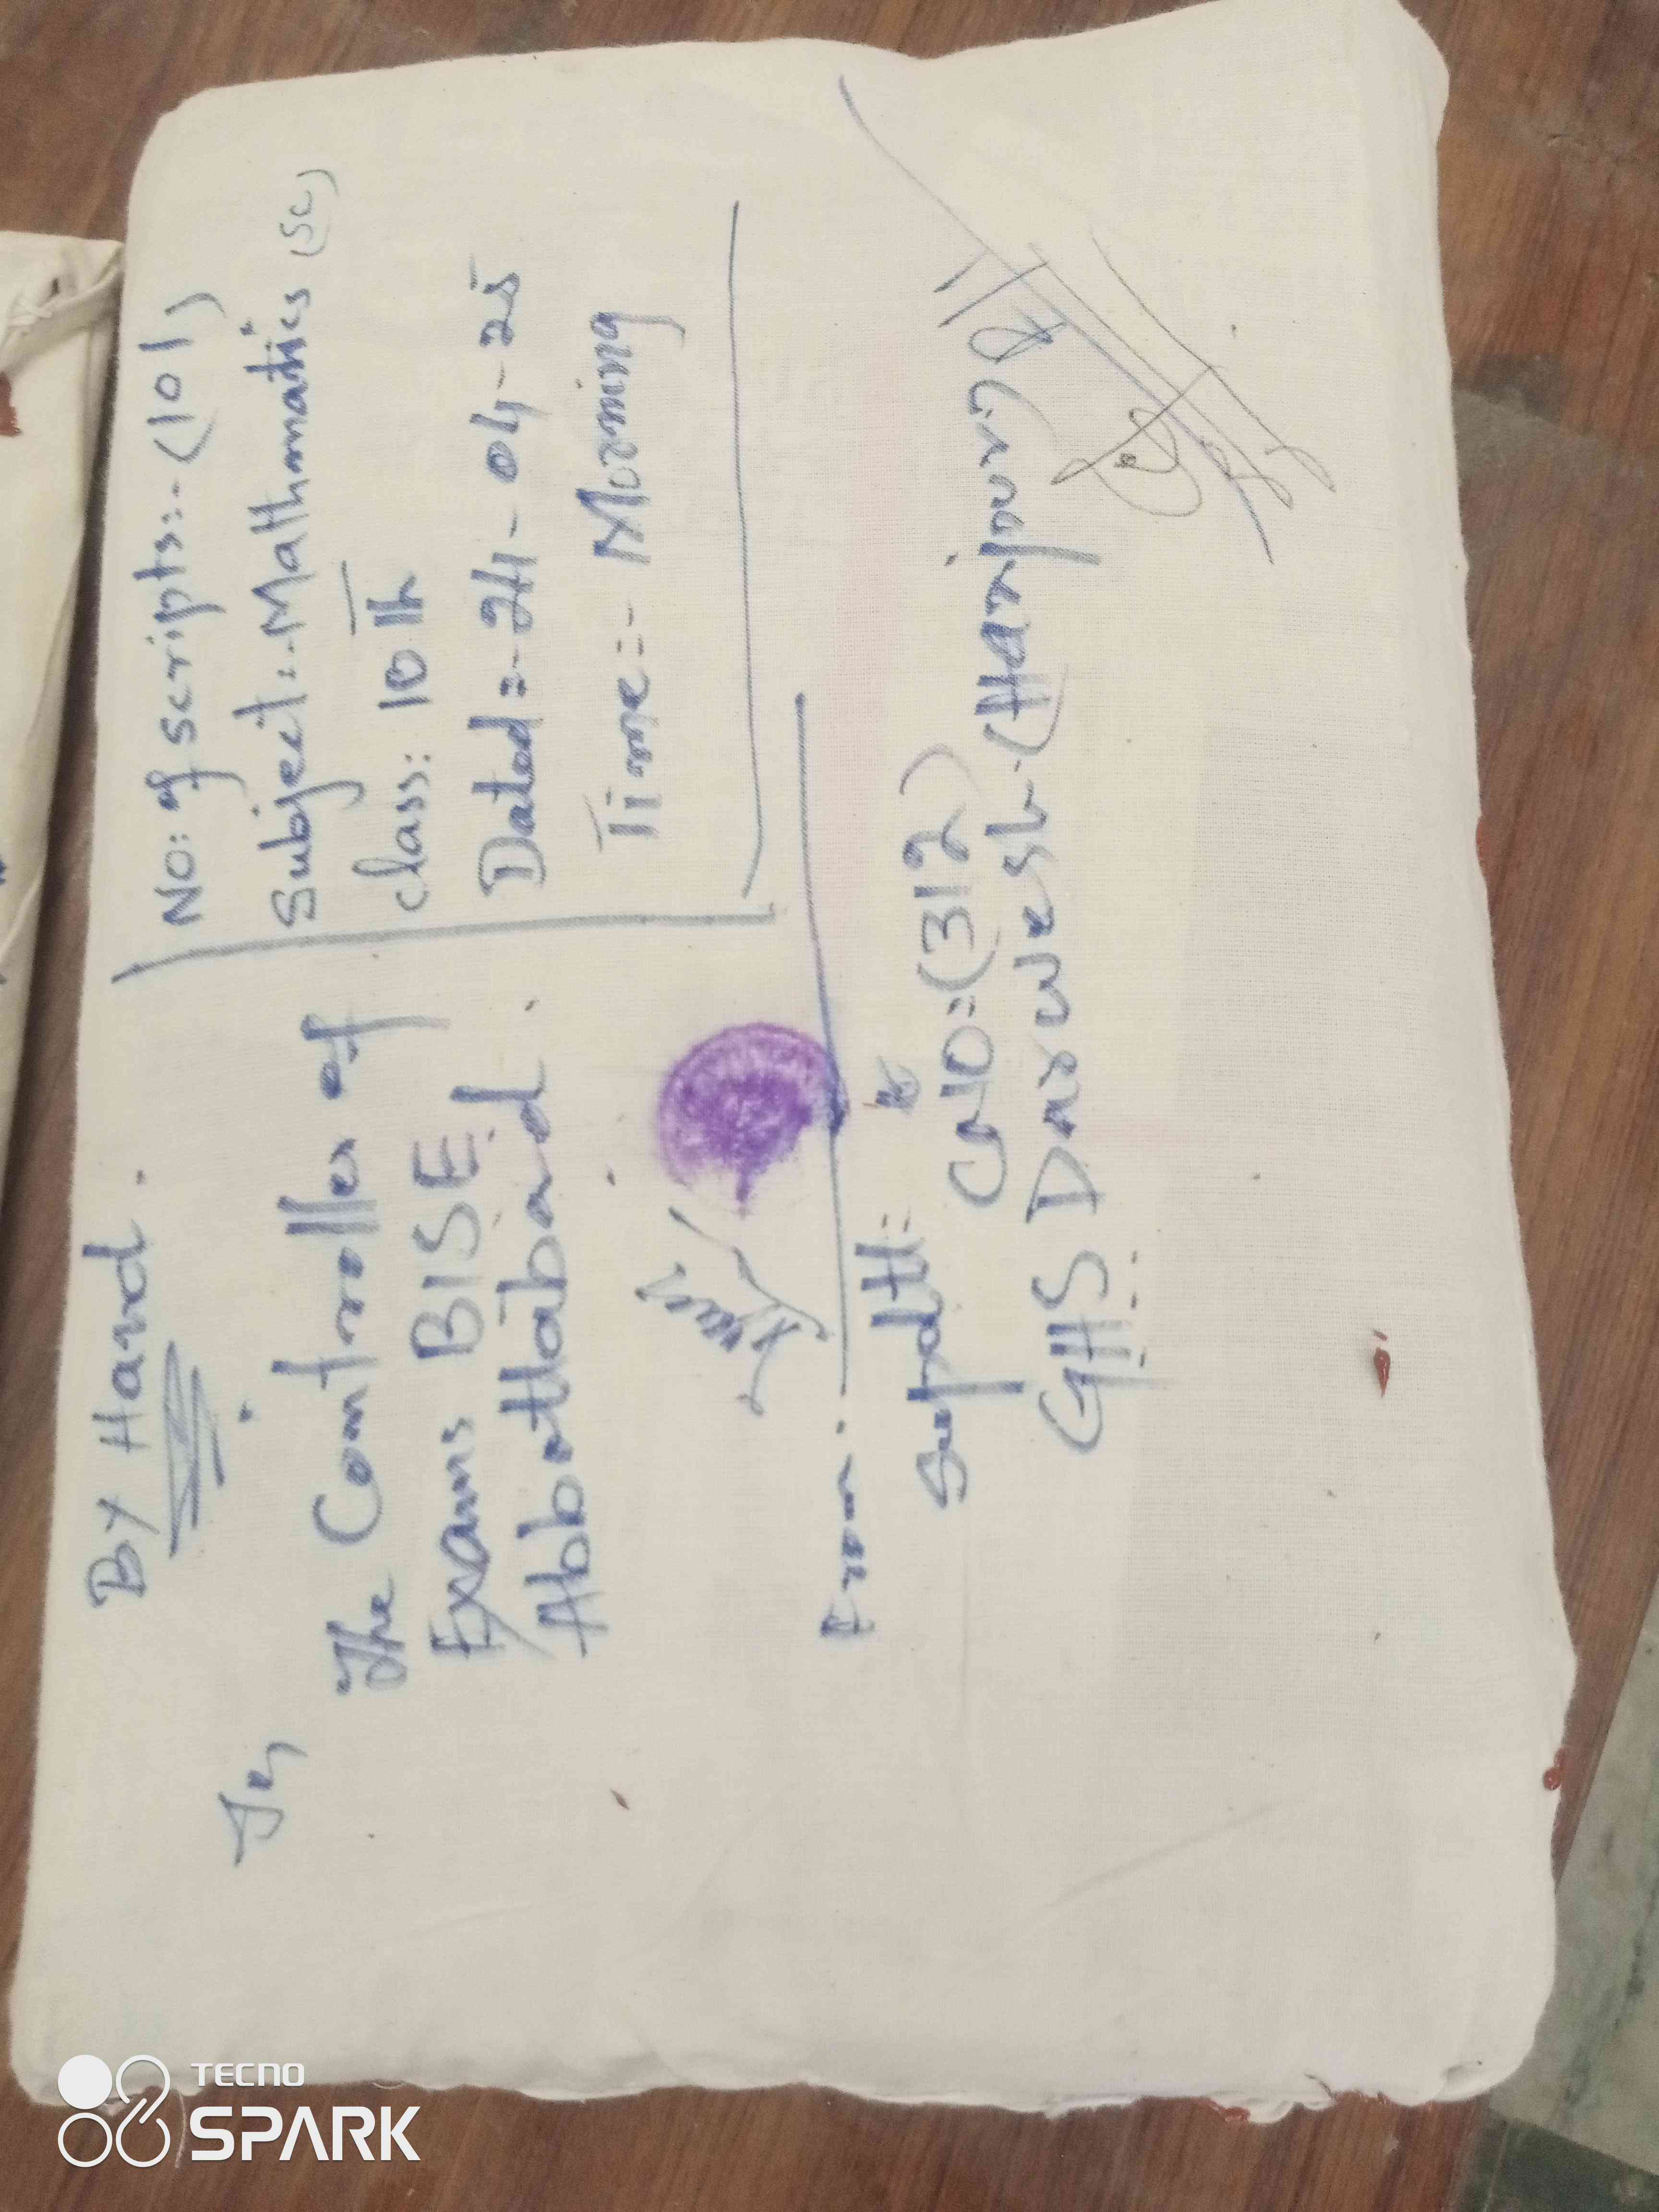 By Hand.
No: of scripts:-(101)
Subject:-Mathmatics (SC)
class: 10th
Dated=-24-04-25
Time=- Morning
To,
The Controller of
Exams BISE
Abbottabad.
From.
Supdtt=
CNO=(312)
GHS Darwesh-(Haripur)
TECNO
SPARK